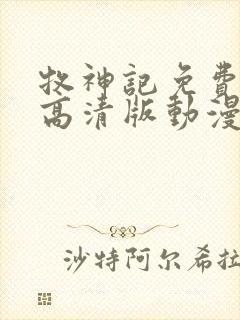 牧神記免費
高清版動漫
沙特阿尔希拉